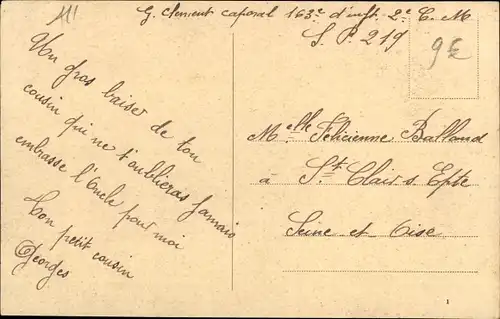 G. Clement caporal 163e d'inft. 2e C. M
S. P. 219
9€
Un gros baiser de ton
cousin qui ne t'oublieras Jamais
embrasse l'Oncle pour moi
Ton petit cousin
Georges
Melle Félicienne Balland
à St Clair s. Epte
Seine et Oise
1